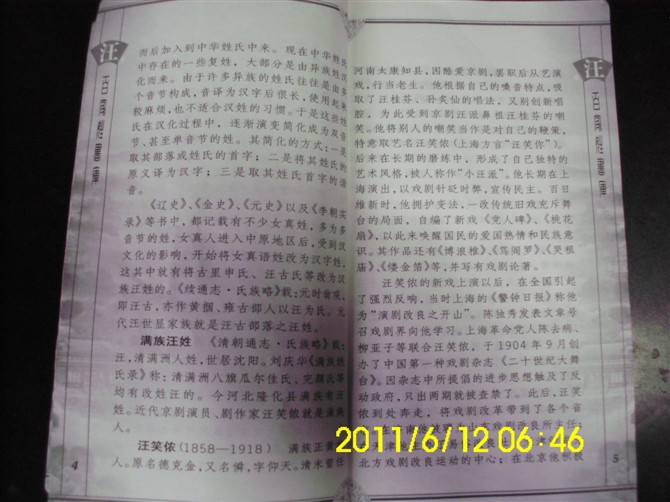 汪
而后加入到中华姓氏中来。现在中华姓氏
中存在的一些复姓，大部分是由异族姓汉
化而来。由于许多异族的姓氏往往是由多
个音节构成，音译为汉字后很长，使用起来
较麻烦，也不适合汉姓的习惯。于是这些姓
氏在汉化过程中，逐渐演变简化成为双音
节、甚至单音节的姓。其简化的方式：一是
取其部落或姓氏的首字；二是将其姓氏的
原义译为汉字；三是取其姓氏首字的谐
音。
《辽史》、《金史》、《元史》以及《季朝实
录》等书中，都记载有不少女真姓，多为多
音节的姓，女真人进入中原地区后，受到汉
文化的影响，开始将女真语姓改为汉字姓，
这其中就有将古里申氏、汪古氏等改为汉
族汪姓的。《续通志·氏族略》载：元时翁观，
即汪古，亦作黄掴、雍古部人以汪为氏。元
代汪世显家族就是汪古部落之汪姓。
满族汪姓 《清朝通志·氏族略》载：
汪，清满洲人姓，世居沈阳。刘庆华《满族姓
氏录》称：清满洲八旗瓜尔佳氏、完颜氏等
均有改姓汪的。今河北隆化县满族有汪
姓。近代京剧演员、剧作家汪笑侬就是满族
人。
汪笑侬(1858—1918) 满族正黄
人。原名德克金，又名僢，字仰天。清末曾任
4
汪
河南太康知县，因酷爱京剧，罢职后从艺演
戏，行当老生。他根据自己的嗓音特点，吸
取了汪桂芬、孙炙仙的唱法，又别创新唱
腔，为此受到京剧汪派鼻祖汪桂芬的嘲
笑。他将别人的嘲笑当作是对自己的鞭策，
特意取艺名汪笑侬(上海方言“汪笑你”)。
后来在长期的磨练中，形成了自己独特的
艺术风格，被人称作“小汪派”。他长期在上
海演出，以戏剧针砭时弊，宣传民主。百日
维新时，他拥护变法，一改传统旧戏充斥舞
台的局面，自编了新戏《党人碑》、《桃花
扇》，以此来唤醒国民的爱国热情和民族意
识。其作品还有《博浪椎》、《骂阎罗》、《哭祖
庙》、《缕金箔》等，并写有戏剧论著。
汪笑侬的新戏上演以后，在全国引起
了强烈反响，当时上海的《警钟日报》称他
为“演剧改良之开山”。陈独秀发表文章号
召戏剧界向他学习。上海革命党人陈去病、
柳亚子等联合汪笑侬，于1904年9月创
办了中国第一种戏剧杂志《二十世纪大舞
台》。因杂志中所提倡的进步思想触及了反
动政府，只出两期就被查禁了。此后，汪笑
侬到处奔走，将戏剧改革带到了各个省
北方戏剧改良运动的中心；在北京他积极
5
2011/6/12 06:46